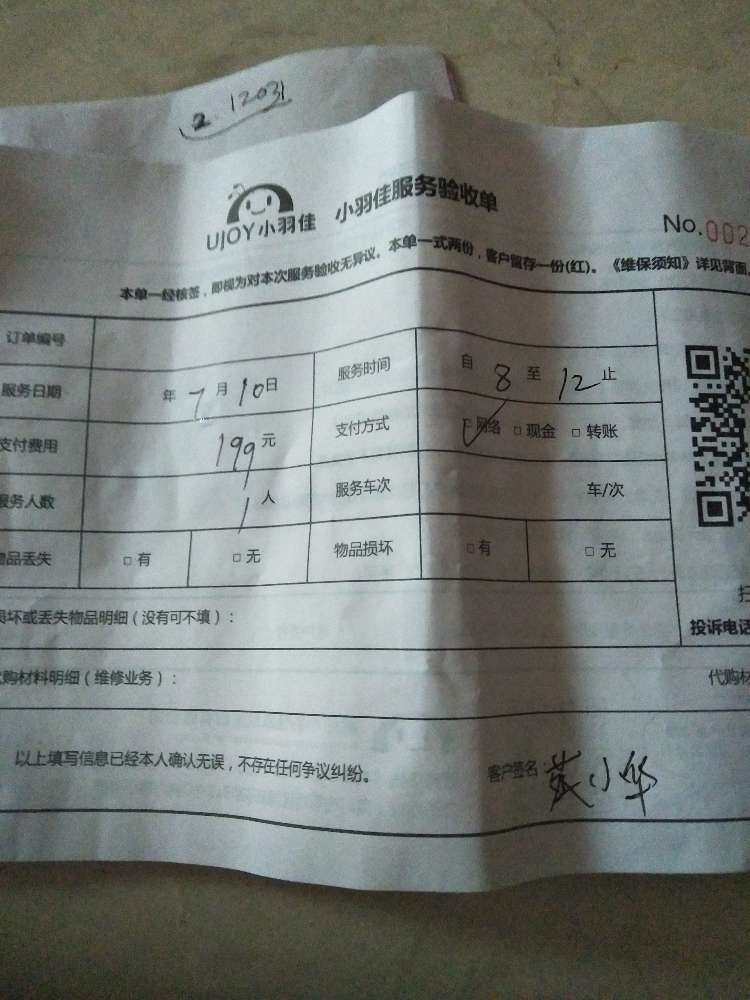 12.1203
UJOY小羽佳 小羽佳服务验收单
No.002
本单一经核签，即视为对本次服务验收无异议。本单一式两份，客户留存一份(红)。《维保须知》详见背面
订单编号
服务日期 年 7 月 10 日 服务时间 自 8 至 12 止
支付费用 199 元 支付方式 □网络 □现金 □转账
服务人数 1 人 服务车次 车/次
物品丢失 □有 □无 物品损坏 □有 □无
损坏或丢失物品明细（没有可不填）：
投诉电话
代购材料明细（维修业务）： 代购材
以上填写信息已经本人确认无误，不存在任何争议纠纷。 客户签名：小华